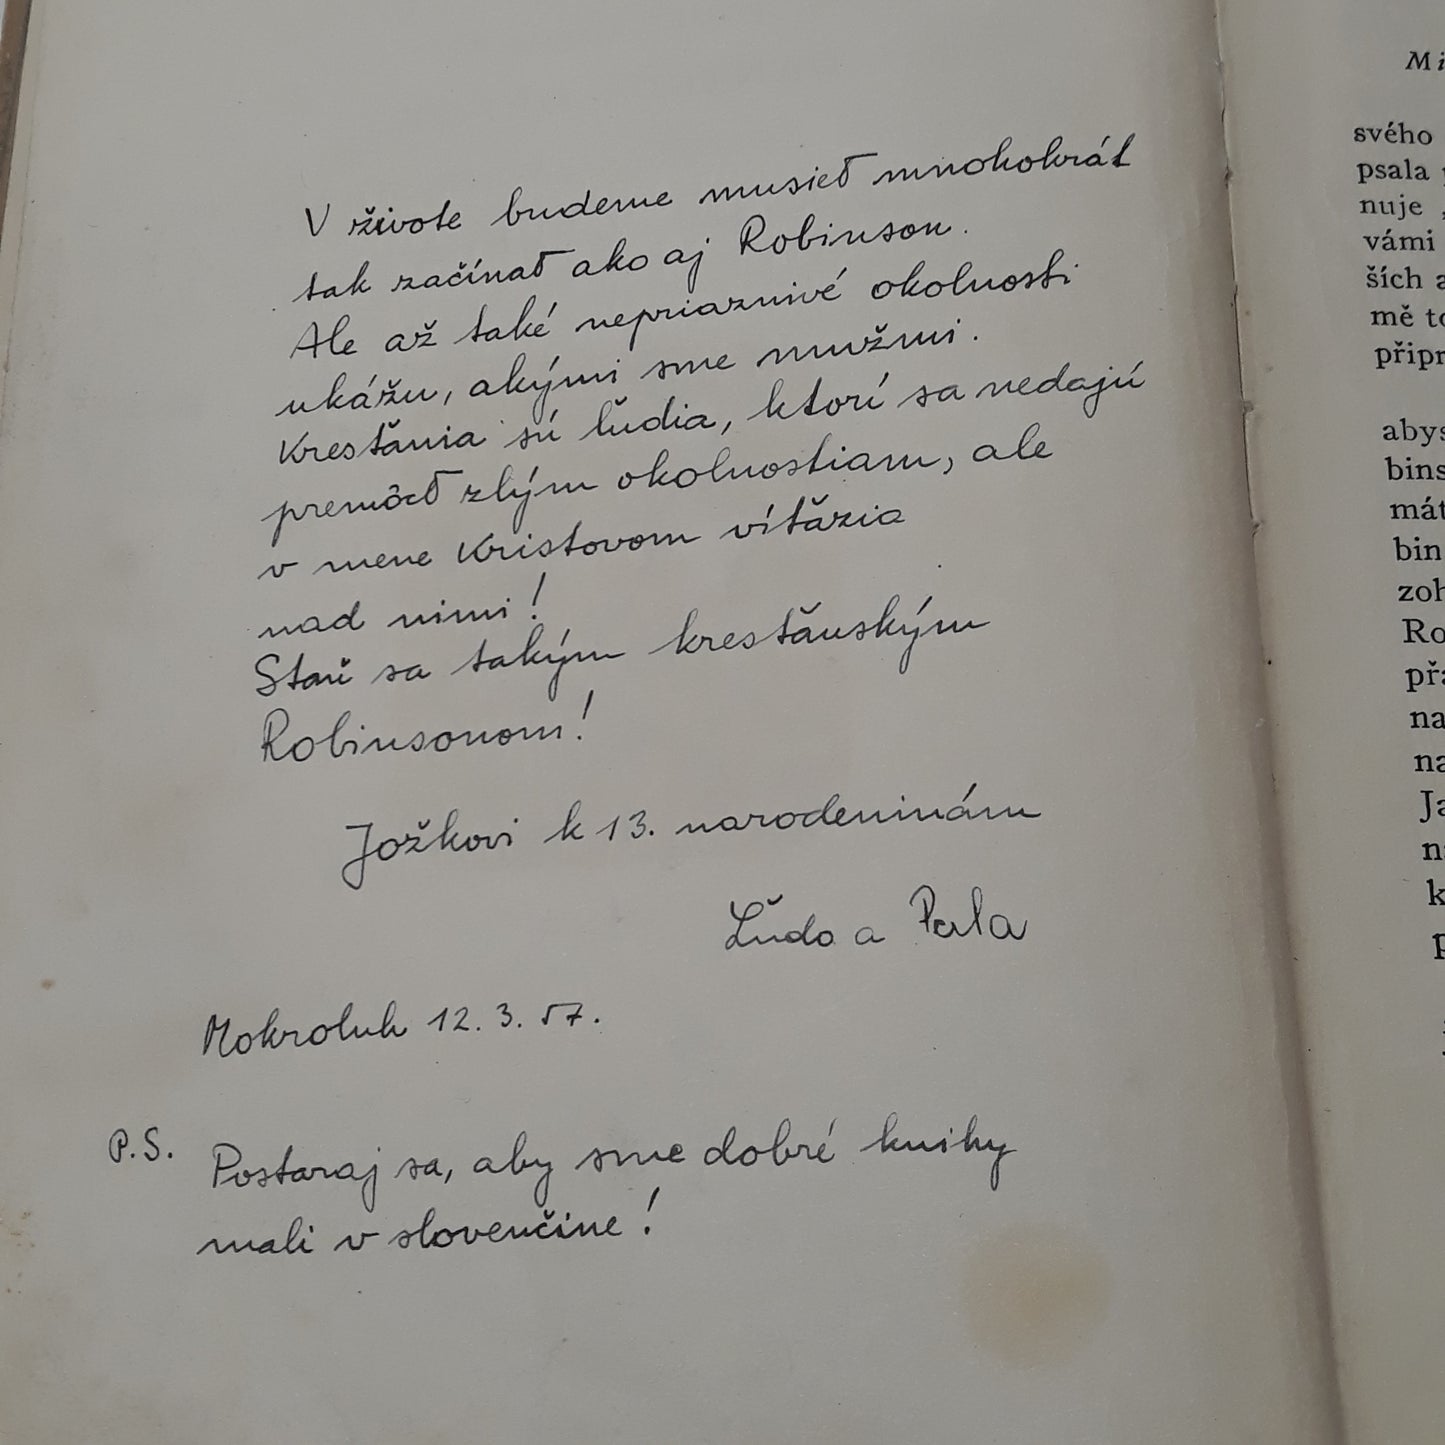 V živote budeme musieť mnohokrát
tak začínať ako aj Robinson.
Ale až také nepriaznivé okolnosti
ukážu, akými sme mužmi.
Kresťania sú ľudia, ktorí sa nedajú
premôcť zlým okolnostiam, ale
v mene Kristovom víťazia
nad nimi!
Staň sa takým kresťanským
Robinsonom!
Jožkovi k 13. narodeninám
Ľudo a Pala
Mokroluh 12. 3. 57.
P.S. Postaraj sa, aby sme dobré knihy
mali v slovenčine!
Mi
svého
psala
nuje
vámi
ších a
mě to
připr
abys
bins
mát
bin
zoh
Ro
př
na
na
Ja
k